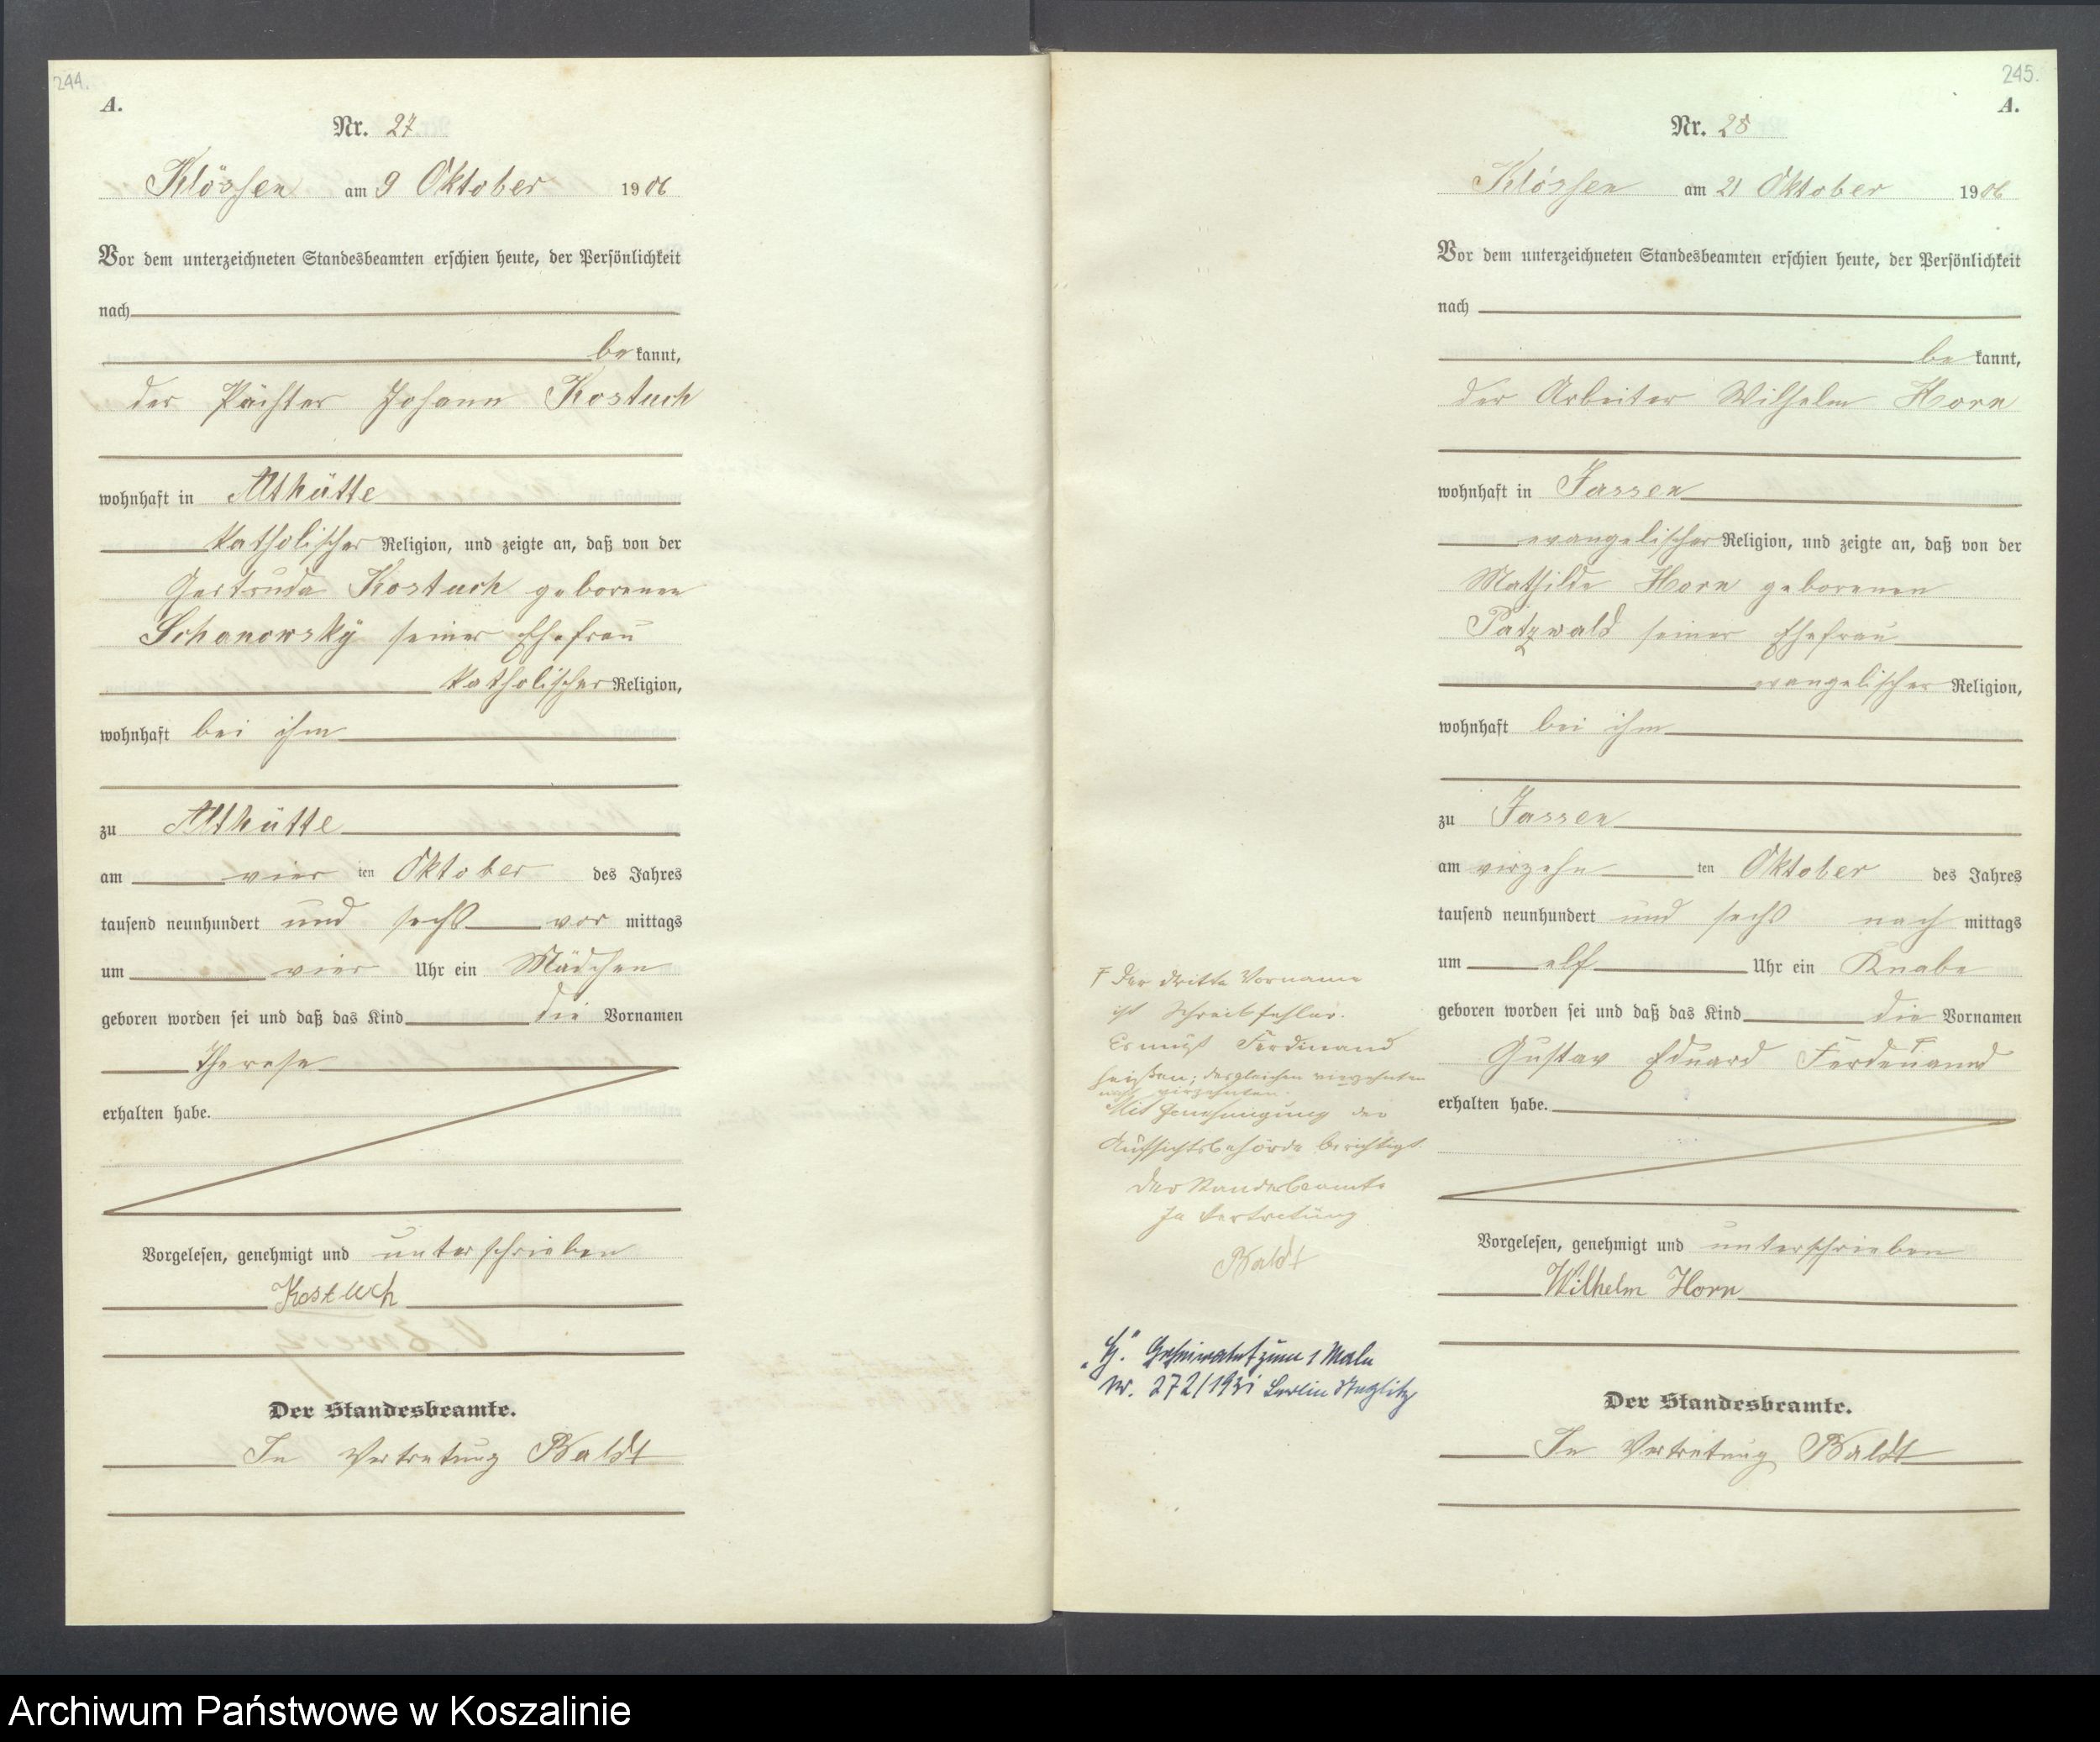 244.
A.
Nr. 27
Klössen am 9 Oktober 1906
Vor dem unterzeichneten Standesbeamten erschien heute, der Persönlichkeit
nach
be kannt,
der Pächter Johann Kostuch
wohnhaft in Althütte
katholischer Religion, und zeigte an, daß von der
Gertruda Kostuch geborenen
Schanowsky seiner Ehefrau
katholischer Religion,
wohnhaft bei ihm
zu Althütte
am vier ten Oktober des Jahres
tausend neunhundert und sechs vor mittags
um vier Uhr ein Mädchen
geboren worden sei und daß das Kind die Vornamen
Therese
erhalten habe.
Vorgelesen, genehmigt und unterschrieben
Kostuch
Der Standesbeamte.
In Vertretung Baldt
245.
A.
Nr. 28
Klössen am 21 Oktober 1906
Vor dem unterzeichneten Standesbeamten erschien heute, der Persönlichkeit
nach
be kannt,
der Arbeiter Wilhelm Horn
wohnhaft in Jassen
evangelischer Religion, und zeigte an, daß von der
Mathilde Horn geborenen
Patzwald seiner Ehefrau
evangelischer Religion,
wohnhaft bei ihm
zu Jassen
am virzehn ten Oktober des Jahres
tausend neunhundert und sechs nach mittags
um elf Uhr ein Knabe
geboren worden sei und daß das Kind die Vornamen
Gustav Eduard Ferdenannd
erhalten habe.
Vorgelesen, genehmigt und unterschrieben
Wilhelm Horn
Der Standesbeamte.
In Vertretung Baldt
Der dritte Vorname
ist Schreibfehler.
Es muß Ferdinand
heißen; desgleichen vierzehnten
nicht virzehnten.
Mit Genehmigung der
Aufsichtsbehörde berichtigt.
Der Standesbeamte
In Vertretung
Baldt
Geheiratet zum 1 Male
Nr. 272/1931 Berlin Steglitz
Archiwum Państwowe w Koszalinie